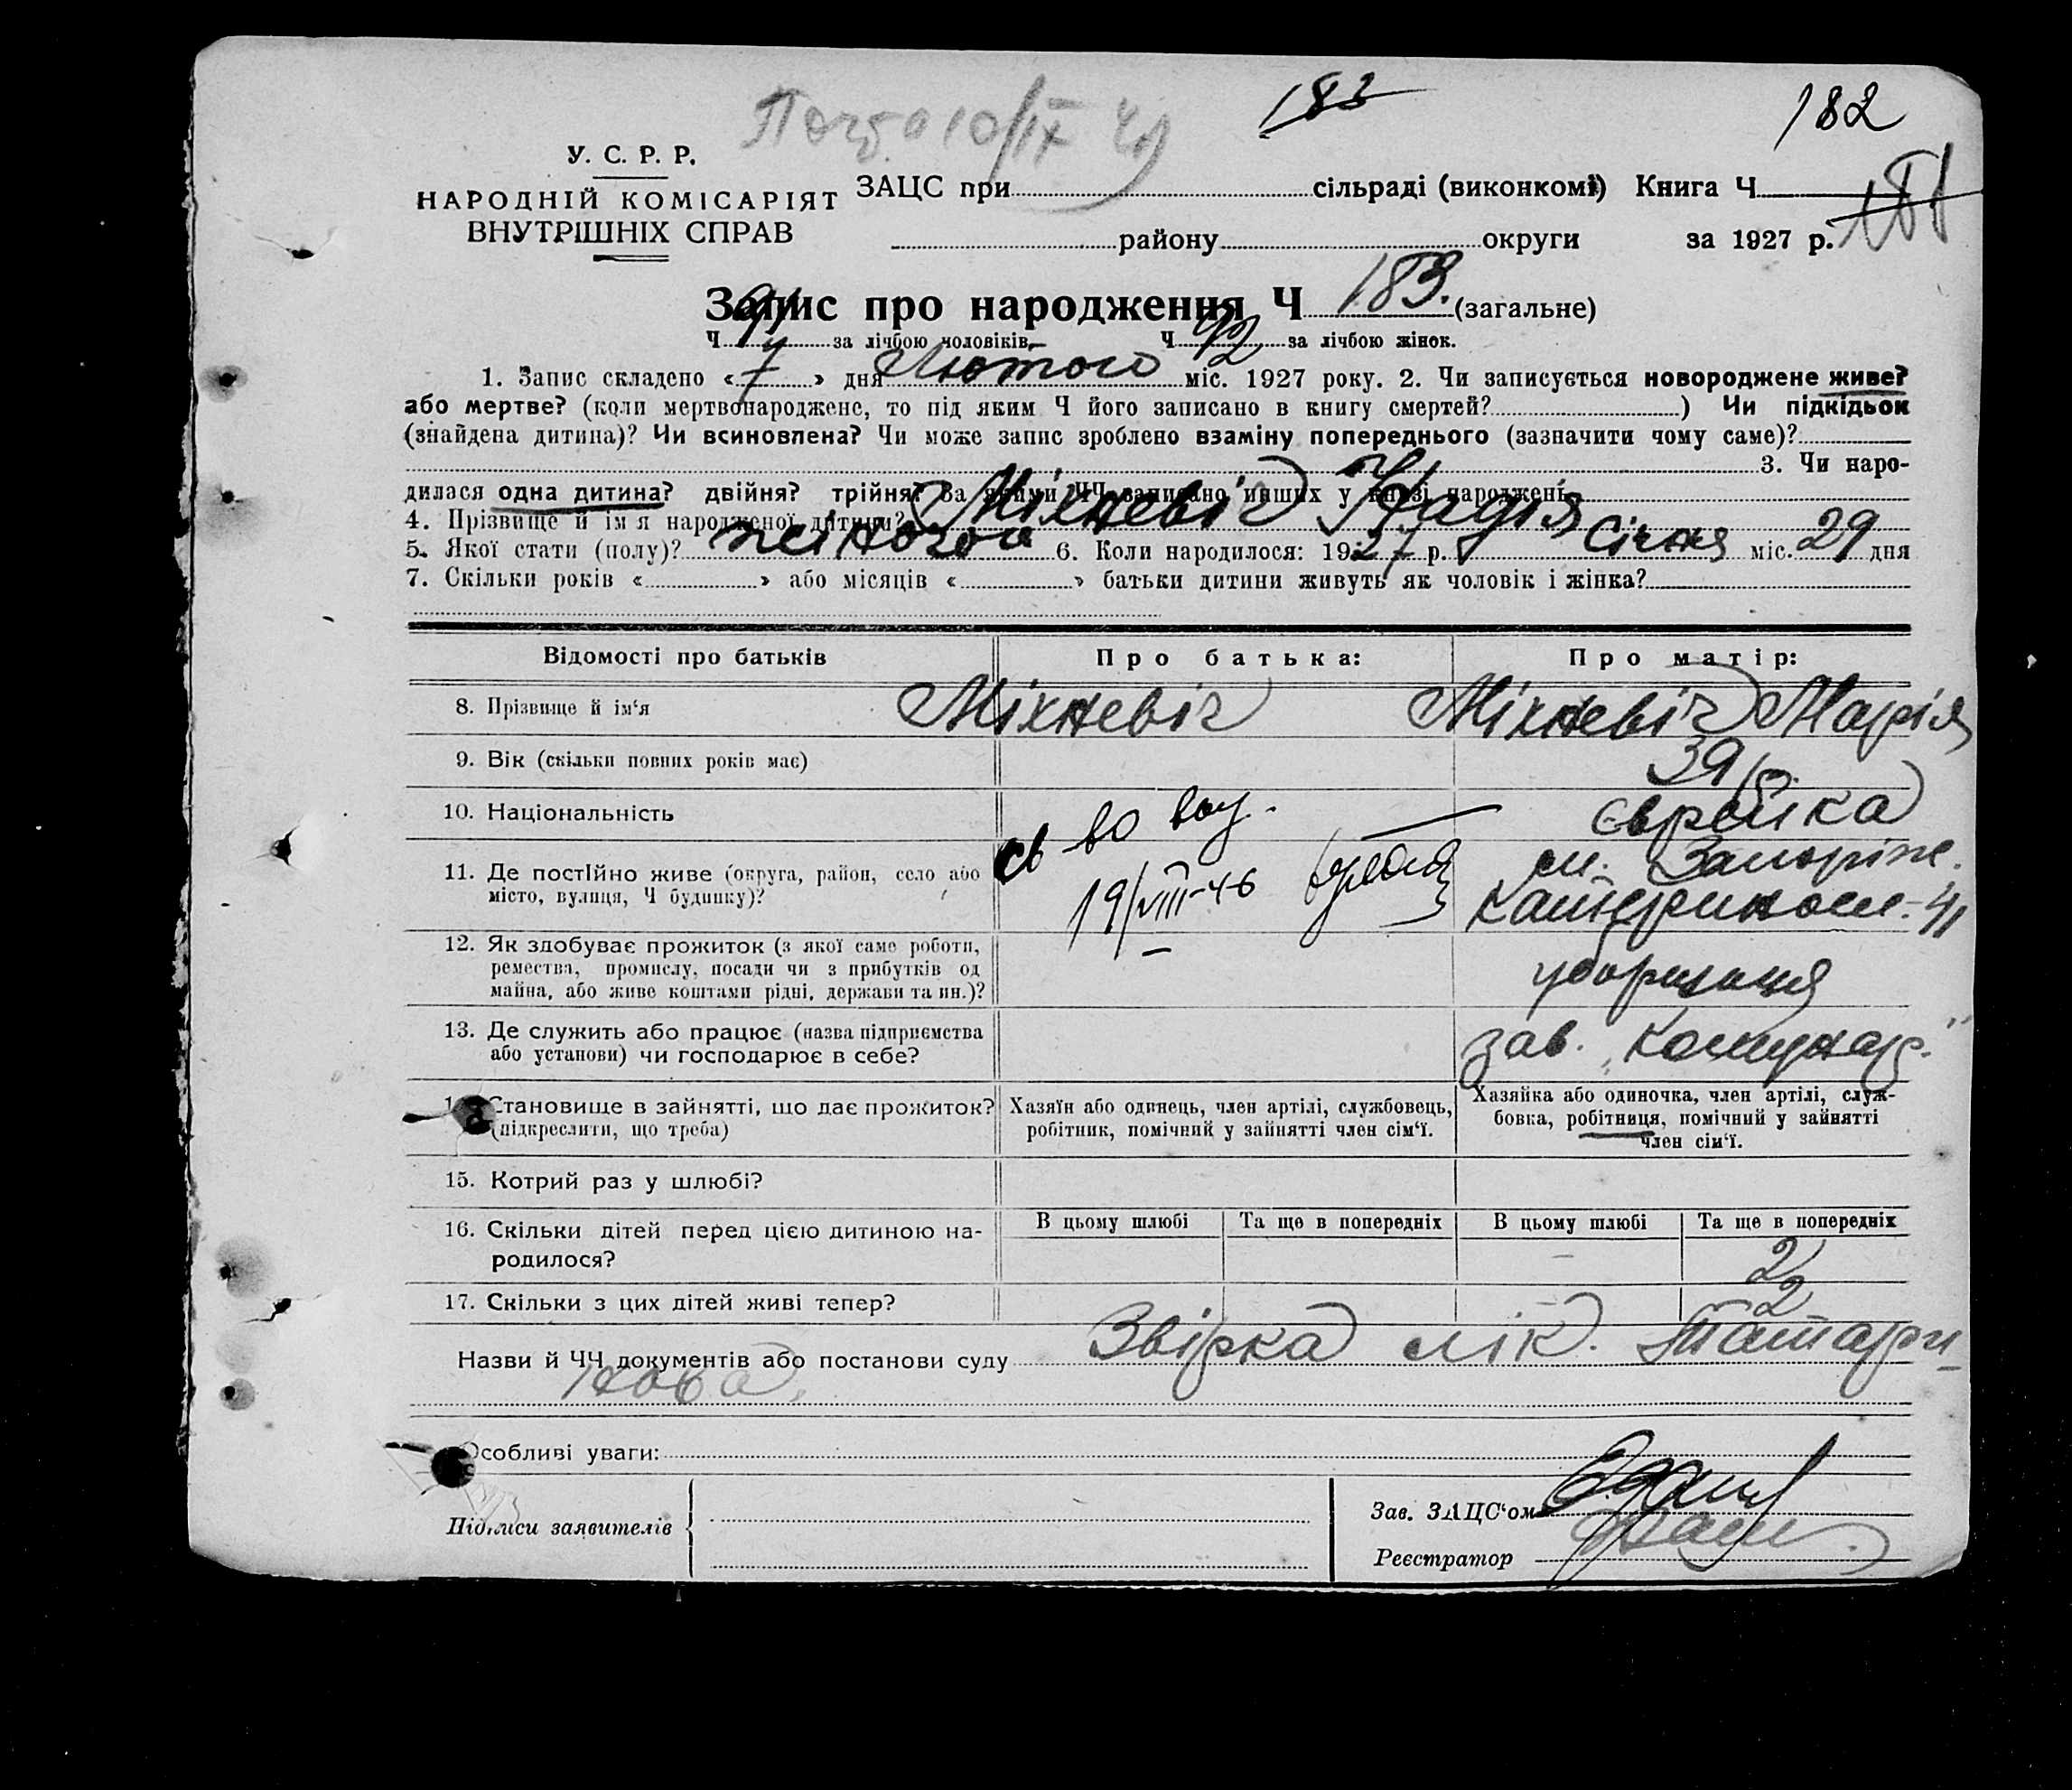 183
182
У. С. Р. Р.
НАРОДНІЙ КОМІСАРІЯТ
ВНУТРІШНІХ СПРАВ
ЗАЦС при сільраді (виконкомі) Книга Ч
району округи за 1927 р.
Запис про народження Ч 183. (загальне)
Ч 91 за лічбою чоловіків, Ч 92 за лічбою жінок.
1. Запис складено « 7 » дня Лютого міс. 1927 року. 2. Чи записується новороджене живе?
або мертве? (коли мертвонароджене, то під яким Ч його записано в книгу смертей? ) Чи підкідьок
(знайдена дитина)? Чи всиновлена? Чи може запис зроблено взаміну попереднього (зазначити чому саме)?
3. Чи наро-
дилася одна дитина? двійня? трійня? За якими ЧЧ записано инших у книзі народжень
4. Прізвище й ім'я народженої дитини? Міхневіч Надія
5. Якої стати (полу)? жіночого 6. Коли народилося: 1927 р. Січня міс. 29 дня
7. Скільки років « » або місяців « » батьки дитини живуть як чоловік і жінка?
Відомості про батьків Про батька: Про матір:
8. Прізвище й ім'я Міхневіч Міхневіч Марія
9. Вік (скільки повних років має) 39
10. Національність Єврейка
11. Де постійно живе (округа, район, село або
місто, вулиця, Ч будинку)?
19/VIII-46
м. Запоріж.
Катеринослав. 41
12. Як здобуває прожиток (з якої саме роботи,
ремества, промислу, посади чи з прибутків од
майна, або живе коштами рідні, держави та ин.)?
уборщиця
13. Де служить або працює (назва підприємства
або установи) чи господарює в себе?
зав. „Комунар."
Становище в зайнятті, що дає прожиток?
(підкреслити, що треба)
Хазяїн або одинець, член артілі, службовець,
робітник, помічний у зайнятті член сім'ї.
Хазяйка або одиночка, член артілі, служ-
бовка, робітниця, помічний у зайнятті
член сім'ї.
15. Котрий раз у шлюбі?
16. Скільки дітей перед цією дитиною на-
родилося?
В цьому шлюбі Та ще в попередніх В цьому шлюбі Та ще в попередніх
2
17. Скільки з цих дітей живі тепер? 2
Назви й ЧЧ документів або постанови суду Звірка лік. Татари-
нова.
Особливі уваги:
Підписи заявителів
Зав. ЗАЦС'ом
Реєстратор